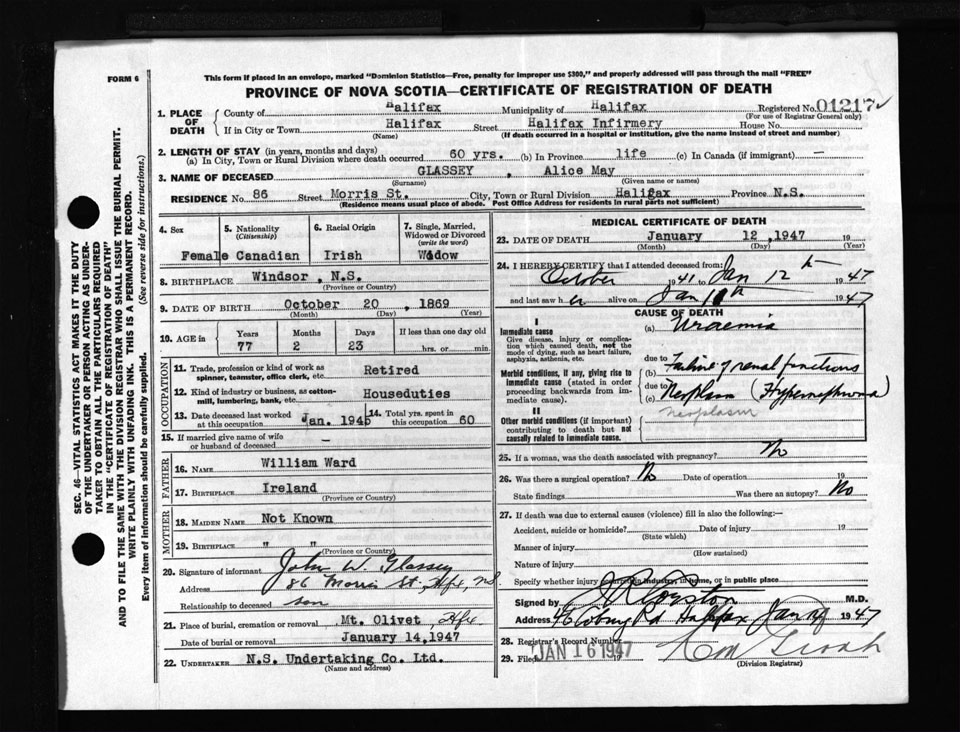 FORM 6
This form if placed in an envelope, marked "Dominion Statistics—Free, penalty for improper use $300," and properly addressed will pass through the mail "FREE"
PROVINCE OF NOVA SCOTIA—CERTIFICATE OF REGISTRATION OF DEATH
1. PLACE OF DEATH County of Halifax Municipality of Halifax Registered No. 01217
(For use of Registrar General only)
If in City or Town Halifax Street Halifax Infirmery House No.
(Name) (If death occurred in a hospital or institution, give the name instead of street and number)
2. LENGTH OF STAY (in years, months and days)
(a) In City, Town or Rural Division where death occurred 60 yrs. (b) In Province life (c) In Canada (if immigrant) —
3. NAME OF DECEASED GLASSEY , Alice May
(Surname) (Given name or names)
RESIDENCE No. 86 Street Morris St. City, Town or Rural Division Halifax Province N.S.
(Residence means usual place of abode. Post Office Address for residents in rural parts not sufficient)
4. Sex 5. Nationality (Citizenship) 6. Racial Origin 7. Single, Married, Widowed or Divorced (write the word)
Female Canadian Irish Widow
8. BIRTHPLACE Windsor, N.S.
(Province or Country)
9. DATE OF BIRTH October 20 , 1869
(Month) (Day) (Year)
10. AGE in Years Months Days If less than one day old
77 2 23 hrs. or min.
OCCUPATION
11. Trade, profession or kind of work as spinner, teamster, office clerk, etc. Retired
12. Kind of industry or business, as cotton-mill, lumbering, bank, etc. Houseduties
13. Date deceased last worked at this occupation Jan. 1945 14. Total yrs. spent in this occupation 60
15. If married give name of wife or husband of deceased —
FATHER
16. NAME William Ward
17. BIRTHPLACE Ireland
(Province or Country)
MOTHER
18. MAIDEN NAME Not Known
19. BIRTHPLACE " "
(Province or Country)
20. Signature of informant John W. Glassey
Address 86 Morris St., Hfx, NS
Relationship to deceased son
21. Place of burial, cremation or removal Mt. Olivet, Hfx.
Date of burial or removal January 14,1947
22. UNDERTAKER N.S. Undertaking Co. Ltd.
(Name and address)
MEDICAL CERTIFICATE OF DEATH
23. DATE OF DEATH January 12,1947 19
(Month) (Day) (Year)
24. I HEREBY CERTIFY that I attended deceased from:
October 1941 to Jan 12 th 1947
and last saw her alive on Jan 1947
CAUSE OF DEATH
I
Immediate cause (a) Uraemia
Give disease, injury or complication which caused death, not the mode of dying, such as heart failure, asphyxia, asthenia, etc.
due to
Morbid conditions, if any, giving rise to immediate cause (stated in order proceeding backwards from immediate cause). (b) Failure of renal functions
due to
(c) Neoplasm (Hypernephroma)
neoplasm
II
Other morbid conditions (if important) contributing to death but not causally related to immediate cause.
25. If a woman, was the death associated with pregnancy? No
26. Was there a surgical operation? No Date of operation 19
State findings Was there an autopsy? No
27. If death was due to external causes (violence) fill in also the following:—
Accident, suicide or homicide? Date of injury 19
(State which)
Manner of injury
(How sustained)
Nature of injury
Specify whether injury occurred in industry, in home, or in public place
Signed by M.D.
Address Coburg Rd Halifax Jan 1947
28. Registrar's Record Number
29. Filed JAN 16 1947
(Division Registrar)
SEC. 46—VITAL STATISTICS ACT MAKES IT THE DUTY
OF THE UNDERTAKER OR PERSON ACTING AS UNDER-
TAKER TO OBTAIN ALL THE PARTICULARS REQUIRED
IN THE "CERTIFICATE OF REGISTRATION OF DEATH"
AND TO FILE THE SAME WITH THE DIVISION REGISTRAR WHO SHALL ISSUE THE BURIAL PERMIT.
WRITE PLAINLY WITH UNFADING INK. THIS IS A PERMANENT RECORD.
Every item of information should be carefully supplied. (See reverse side for instructions.)